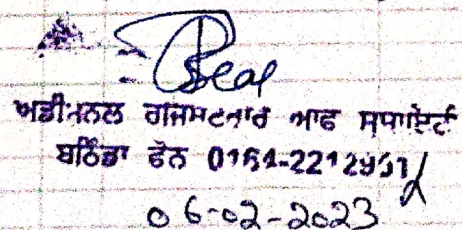 ਅਡੀਸ਼ਨਲ ਰਜਿਸਟਰਾਰ ਆਫ ਸੁਸਾਇਟੀ
ਬਠਿੰਡਾ ਫੋਨ 0164-2212951
06-02-2023